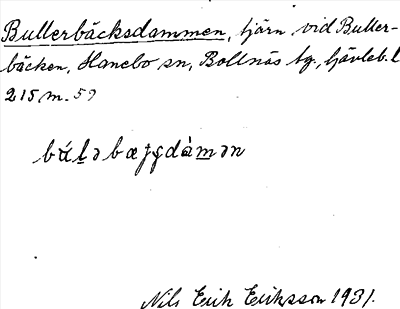 Bullerbäcksdammen, tjärn vid Buller-
bäcken, Hanebo sn, Bollnäs tg., Gävleb. l
215 m. 59
Nils Erik Eriksson 1931.